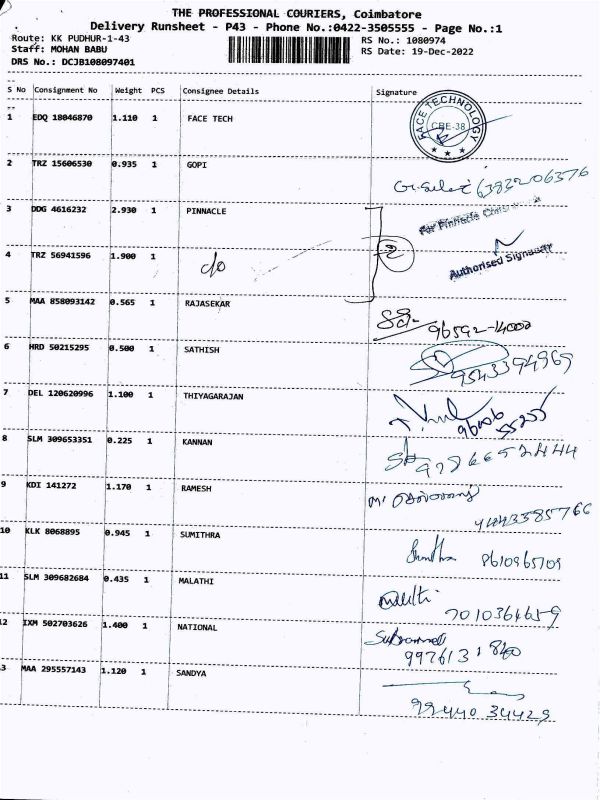 THE PROFESSIONAL COURIERS, Coimbatore
Delivery Runsheet - P43 - Phone No.:0422-3505555 - Page No.:1
Route: KK PUDHUR-1-43
RS No.: 1080974
Staff: MOHAN BABU
RS Date: 19-Dec-2022
DRS No.: DCJB108097401
S No Consignment No Weight PCS Consignee Details Signature
1 EDQ 18046870 1.110 1 FACE TECH
FACE TECHNOLOGY
CBE-38
2 TRZ 15606530 0.935 1 GOPI
3 DDG 4616232 2.930 1 PINNACLE
For Pinnacle
4 TRZ 56941596 1.900 1 c/o 2
Authorised Signatory
5 MAA 858093142 0.565 1 RAJASEKAR
96592-14002
6 HRD 50215295 0.500 1 SATHISH
9543394969
7 DEL 120620996 1.100 1 THIYAGARAJAN
8 SLM 309653351 0.225 1 KANNAN
9 KDI 141272 1.170 1 RAMESH
10 KLK 8068895 0.945 1 SUMITHRA
8610965709
11 SLM 309682684 0.435 1 MALATHI
Malathi
7010364659
12 IXM 502703626 1.400 1 NATIONAL
13 MAA 295557143 1.120 1 SANDYA
99440 34429